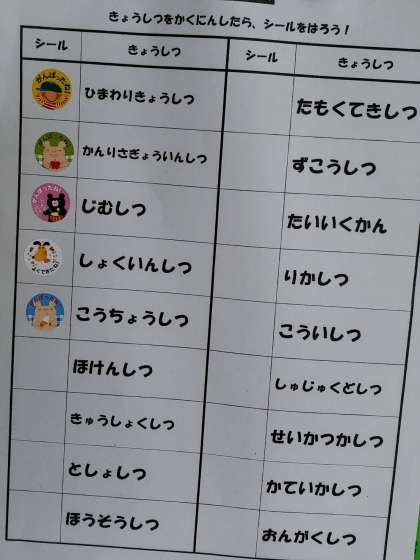 きょうしつをかくにんしたら、シールをはろう！
シール きょうしつ シール きょうしつ
がんばったね！ ひまわりきょうしつ たもくてきしつ
かんりさぎょういんしつ ずこうしつ
がんばったね！ じむしつ たいいくかん
よくできたね！ しょくいんしつ りかしつ
こうちょうしつ こういしつ
ほけんしつ しゅじゅくどしつ
きゅうしょくしつ せいかつかしつ
としょしつ かていかしつ
ほうそうしつ おんがくしつ